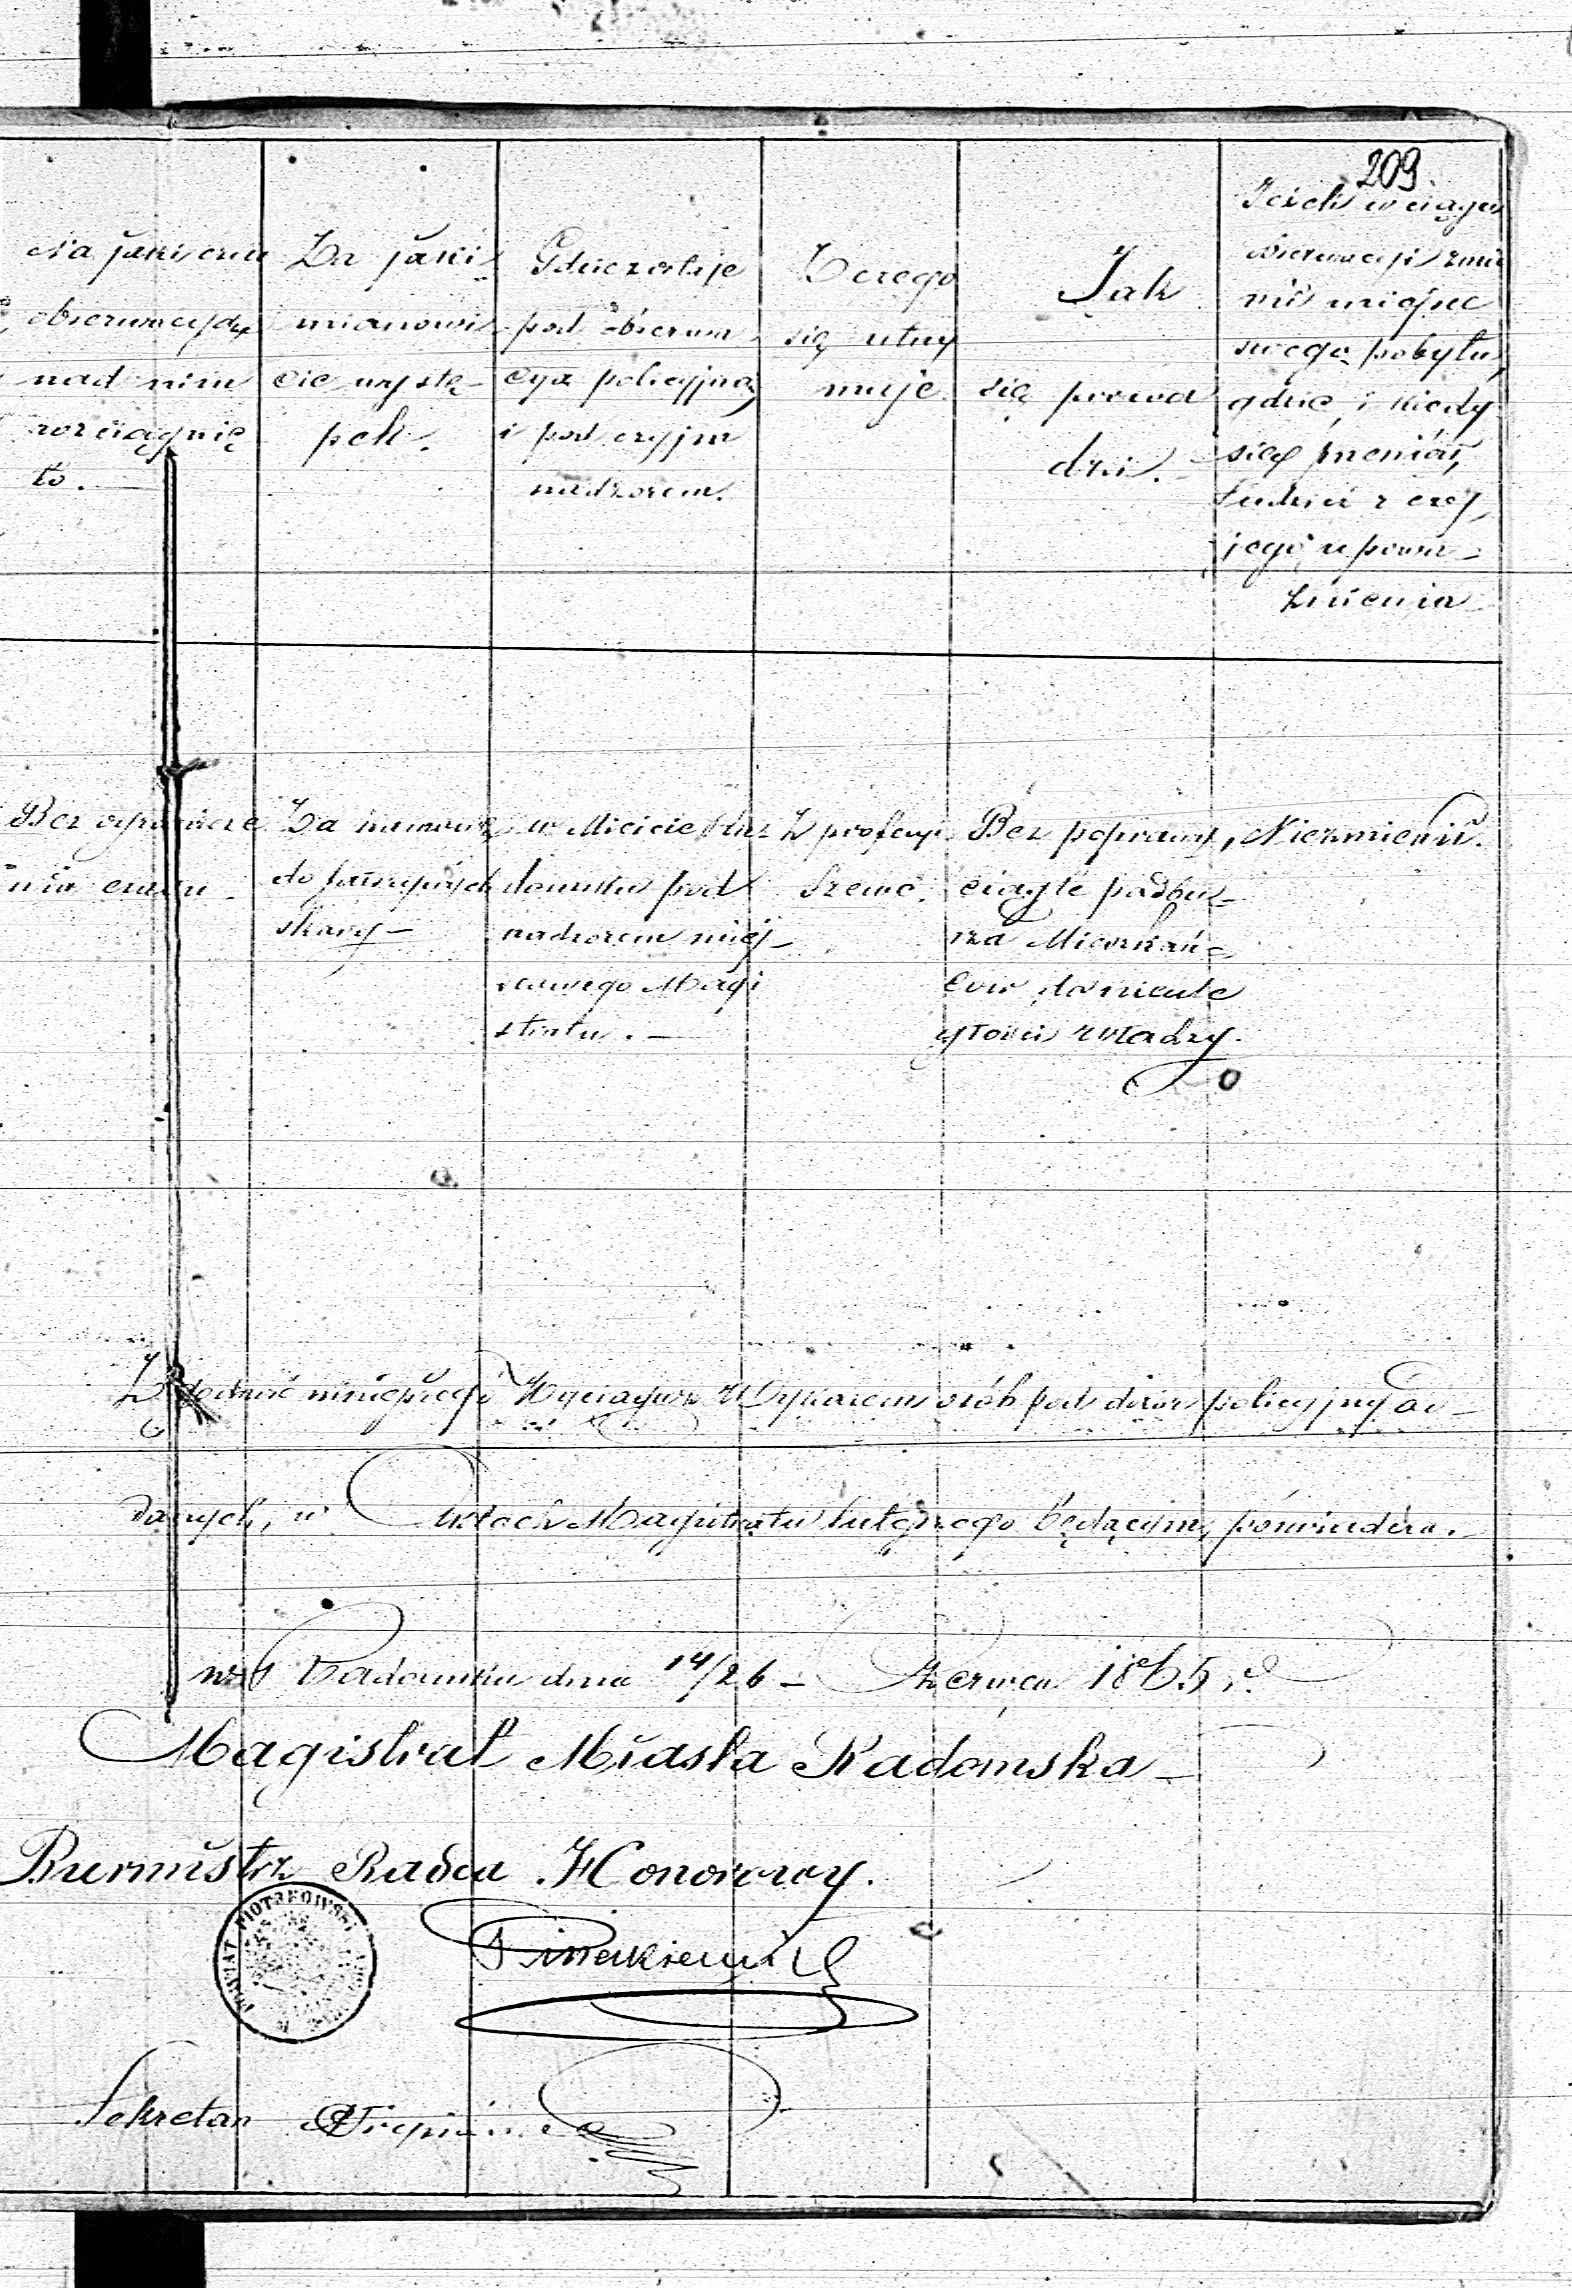 209.
Na jaki czas
obserwacyja
nad nim
rozciągnię
to.
Za jaki
mianowi
cie wystę-
pek.
Gdzie zostaje
pod obserwa
cyą policyjną
i pod czyjm
nadzorem.
Z czego
się utrzy
muje.
Jak
się prowa
dzi.
Jeżeli w ciągu
obserwacyi zmie
nił miejsce
swego pobytu,
gdzie i kiedy
się przeniósł,
tudzież z czy
jego upowa-
żnienia
Bez ogranicze
nia czasu.
Za namowę
do fałszywych
skarg-
w Mieście Ra-
domsku pod
nadzorem miej-
scowego Magi
stratu.-
Z profesyi
Szewc.
Bez poprawy,
ciągle podbu-
rza Mieszkań-
ców do nieule
głości władzy.
Niezmienił.
Zgodność niniejszego Wyciągu z Wykazem osób pod dozór policyjny od-
danych, w Aktach Magistratu tutejszego będącym, poświadcza.-
w Radomsku dnia 14/26- Czerwca 1865 r.
Magistrat Miasta Radomska-
Burmistrz Radca Honorowy.
POWIAT PIOTRKOWSKI
Sekretarz